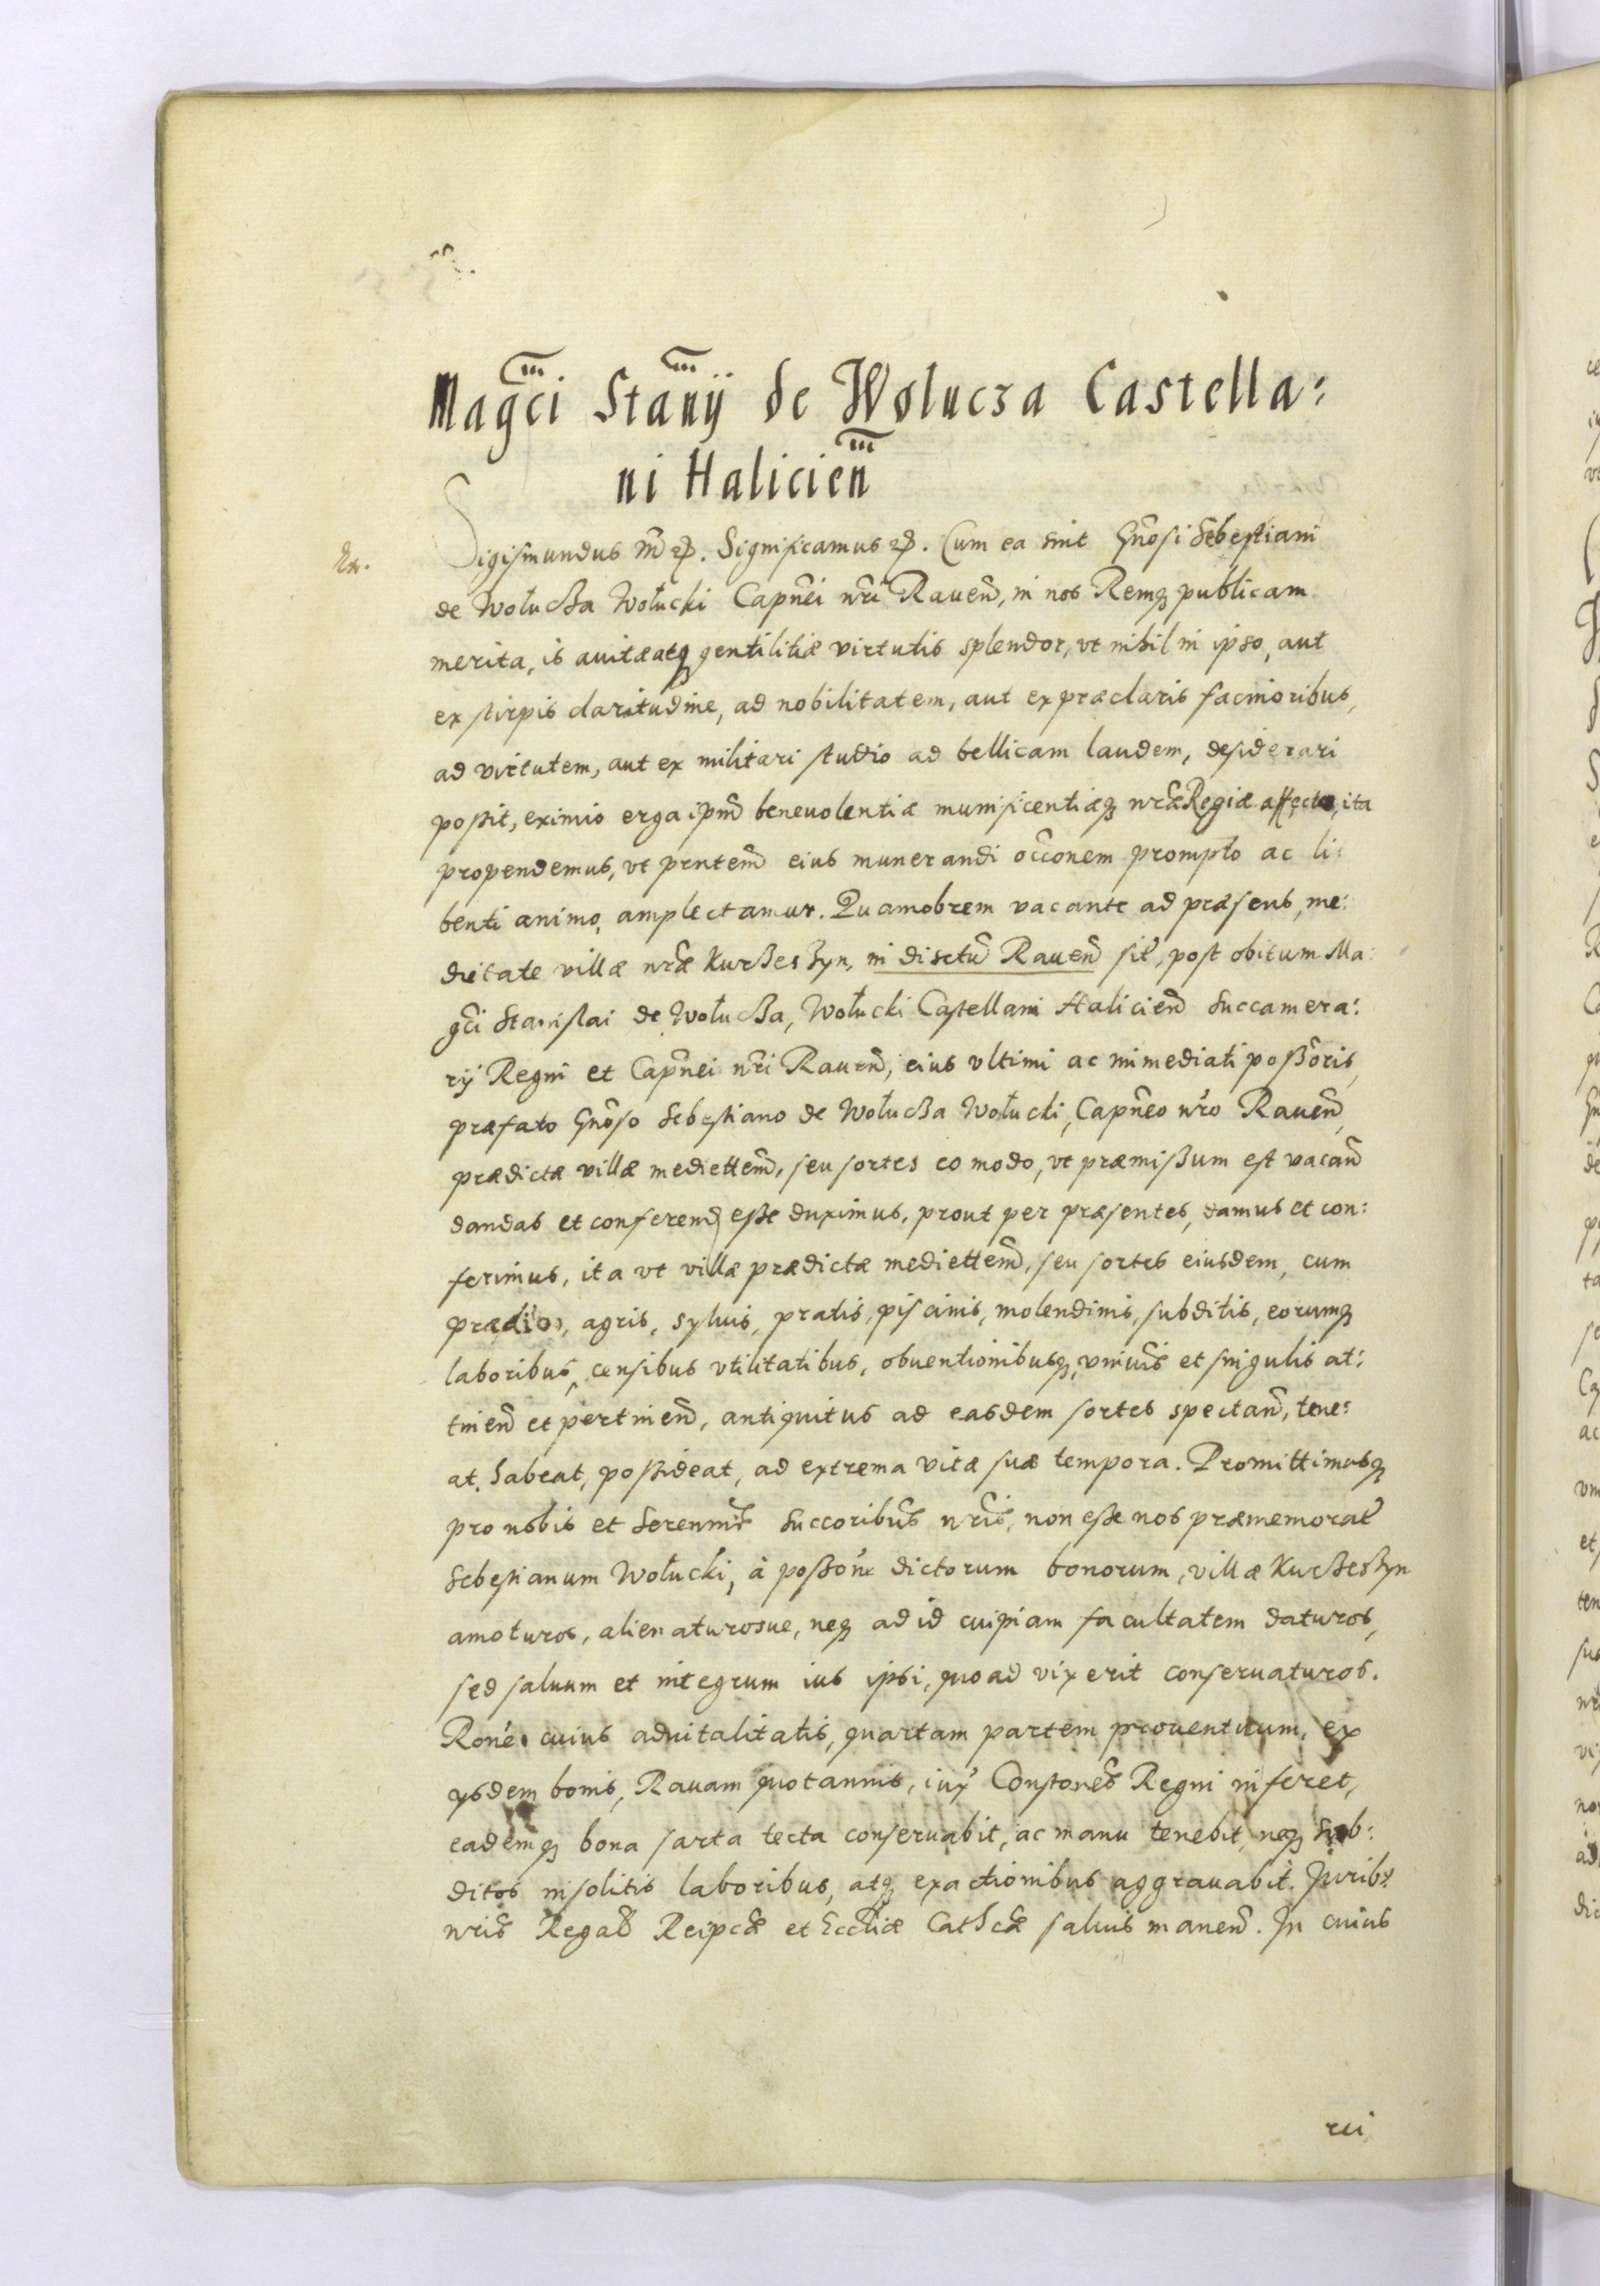 Magc̃i Stanij de Wolucza Castella:
ni Halicień
Ex.
Sigismundus III etc. Significamus etc. Cum ea sint Gnosi Sebestiani
de Wołucza Wołucki Capnei nri Raven, in nos Remq publicam
merita, is auitæ atq gentilitiæ virtutis splendor, vt nihil in ipso, aut
ex stirpis claritudine, ad nobilitatem, aut ex præclaris facinoribus,
ad virtutem, aut ex militari studio ad bellicam laudem, desiderari
possit, eximio erga ipm beneuolentiæ munificentiæq nræ Regiæ affectu, ita
propendemus, vt prntem eius munerandi occonem prompto ac li:
benti animo, amplectamur. Quamobrem vacante ad præsens, me:
dietate villæ nræ Kurzeszyn, in disctu Rauen sit, post obitum Ma:
gci Stanislai de Wołucza, Wołucki Castellani Halicien Succamera:
rij Regni et Capnei nri Rauen, eius vltimi ac immediati possoris,
præfato Gnoso Sebestiano de Wołucza Wołucki, Capneo nro Rauen,
prædictæ villæ mediettem, seu sortes eo modo, vt præmissum est vacan
dandas et conferend esse duximus, prout per præsentes, damus et con:
ferimus, ita vt villæ prædictæ mediettem, seu sortes eiusdem, cum
prædio, agris, syluis, pratis, piscinis, molendinis, subditis, eorumq
laboribus, censibus vtilitatibus, obuentionibusq, vniuis et singulis at:
tinen et pertinen, antiquitus ad easdem sortes spectan, tene:
at, habeat, possideat, ad extrema vitæ suæ tempora. Promittimusq
pro nobis et Serenmis Succoribus nris, non esse nos præmemorat
Sebestianum Wołucki, à possone dictorum bonorum, villæ Kurzeszyn
amoturos, alienaturosue, neq ad id cuipiam facultatem daturos,
sed saluum et integrum ius ipsi, quoad vixerit conseruaturos.
Rone cuius aduitalitatis, quartam partem prouentuum, ex
ysdem bonis, Rauam quotannis, iux Constones Regni inferet,
eademq bona sarta tecta conseruabit, ac manu tenebit, neq Sub:
ditos insolitis laboribus, atq exactionibus aggrauabit. Jurib9
nris Regal Reipcæ et Eccliæ Cathcæ saluis manen. In cuius
rei